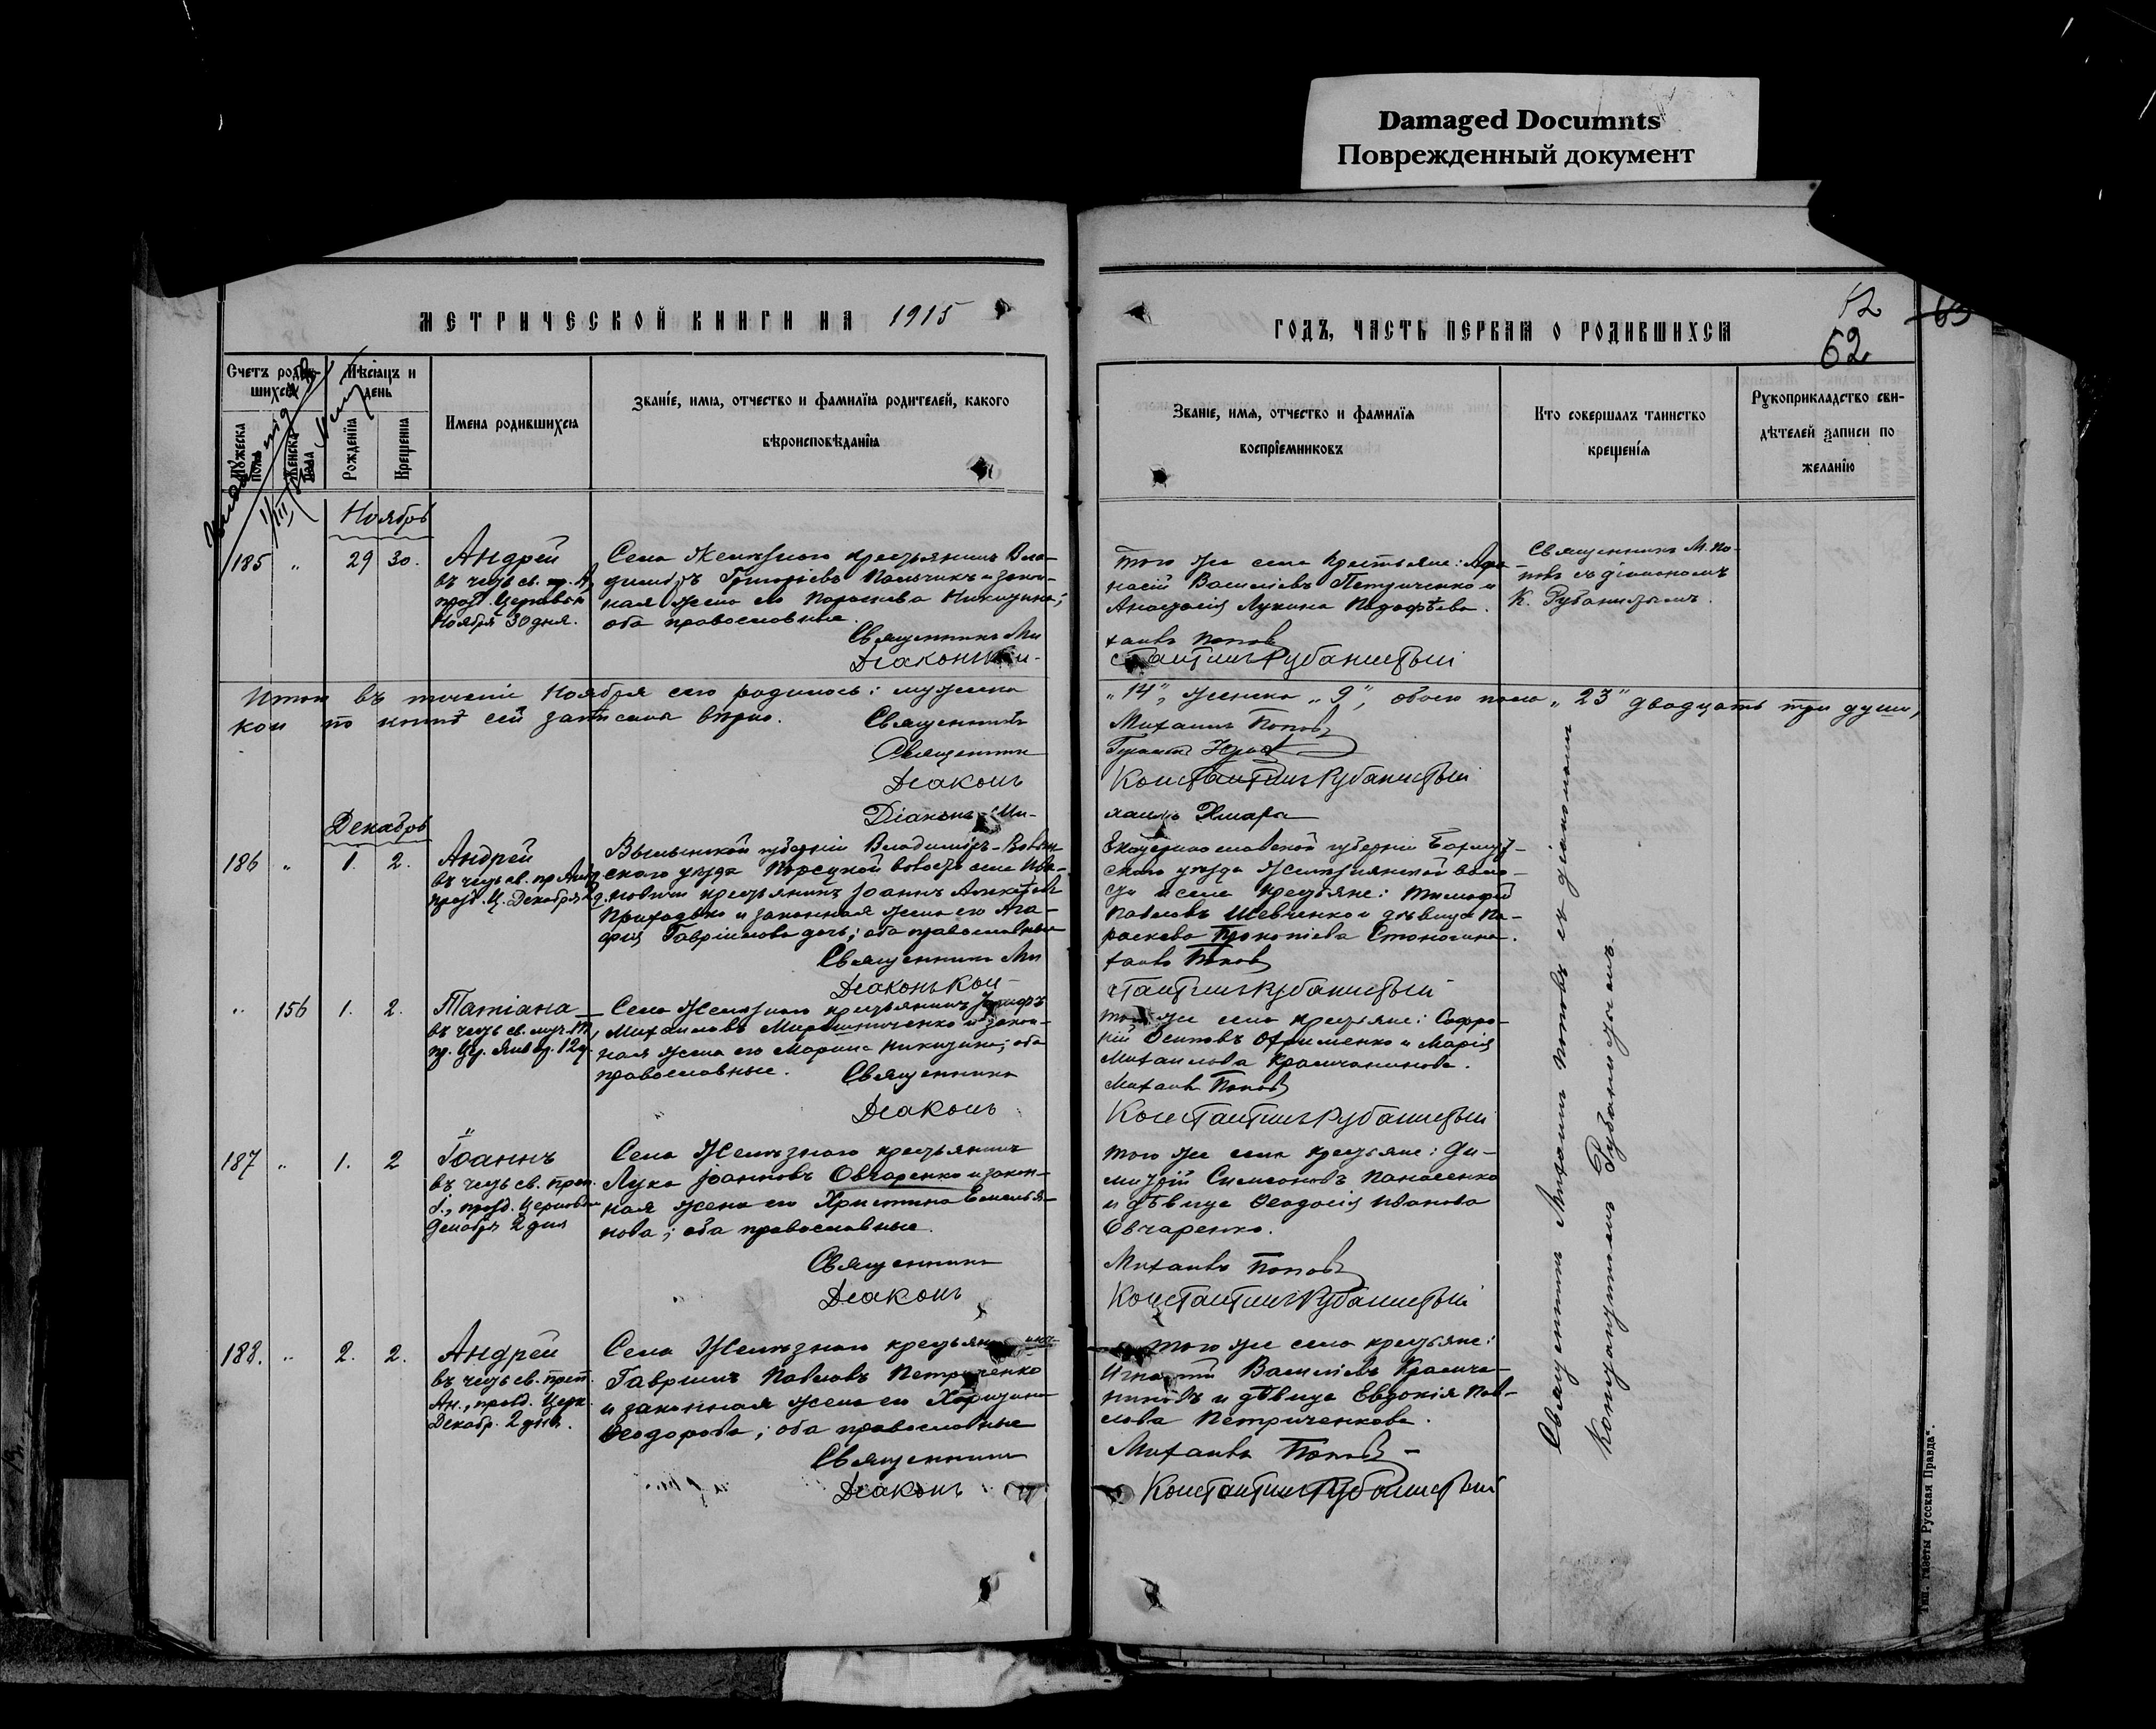 Damaged Documnts
Поврежденный документ
МЕТРИЧЕСКОЙ КНИГИ НА 1915
ГОДЪ, ЧАСТЬ ПЕРВАЯ О РОДИВШИХСЯ
52
62
63
Счетъ родив-
шихся
Мѣсяцъ и
день
Мужеска
пола
Женска
пола
Рожденія
Крещенія
Имена родившихся
Званіе, имя, отчество и фамилія родителей, какого
вѣроисповѣданія
Званіе, имя, отчество и фамилія
воспріемниковъ
Кто совершалъ таинство
крещенія
Рукоприкладство сви-
дѣтелей записи по
желанію
Ноябрь
185 " 29 30.
Андрей
въ честь св. пр. А,
празд. Церковью
Ноября 30 дня.
Села Желѣзного крестьянинъ Вла-
димиръ Григоріевъ Пальчикъ и закон-
ная жена его Параскева Никитина;
оба православные.
Священникъ Ми
Діаконъ Кон-
Того же села крестьяне: Афа-
насій Василіевъ Петриченко и
Анастасія Лукина
хаилъ Поповъ
стантинъ Рубанистый
Священникъ М. По-
повъ съ діакономъ
К. Рубанистымъ.
Итого въ теченіе Ноября сего родилось: мужеска
"14", женска "9", обоего пола "23" двадцать три души,
кои по книгѣ сей записаны вѣрно.
Священникъ
Священникъ
Діаконъ
Діаконъ Ми-
Михаилъ Поповъ
Константинъ Рубанистый
хаилъ Хмара
Декабрь
186 " 1. 2.
Андрей
въ честь св. пр. Андр.
празд. Ц. Декабря 2 д.
Волынской губерніи Владиміръ-Волын-
скаго уѣзда Порецкой волости села Ива-
новичи крестьянинъ Іоаннъ
Приходько и законная жена его Ага-
фія Гавріилова дочь; оба православные
Священникъ Ми
Діаконъ Кон-
Екатеринославской губерніи Бахмут-
скаго уѣзда Желѣзнянской воло-
сти и села крестьяне: Тимофей
Павловъ Шевченко и дѣвица Па-
раскева Прокопіева Стоногина.
хаилъ Поповъ
стантинъ Рубанистый
" 156 1. 2.
Татіана
въ честь св. муч. Т.,
пр. Цер. Январ. 12 д.
Села Желѣзного крестьянинъ
Михаиловъ Мирошниченко и закон-
ная жена его Марина Никитина; оба
православные.
Священникъ
Діаконъ
Того же села крестьяне: Софро-
ній Осиповъ Охрименко и Марія
Михаилова Крамчанинова.
Михаилъ Поповъ
Константинъ Рубанистый
187 " 1. 2
Іоаннъ
въ честь св. прор.
І., празд. Церковью
Декабря 2 дня
Села Желѣзного крестьянинъ
Лука Іоанновъ Овчаренко и закон-
ная жена его Христина Емельяно-
нова; оба православные.
Священникъ
Діаконъ
Того же села крестьяне: Ди-
митрій Симеоновъ Панасенко
и дѣвица Ѳеодосія Иванова
Овчаренко.
Михаилъ Поповъ
Константинъ Рубанистый
188. " 2. 2.
Андрей
въ честь св. преп.
Ан., празд. Церк.
Декабр. 2 дня.
Села Желѣзного крестьянинъ
Гавріилъ Павловъ Петриченко
и законная жена его Харитина
Ѳеодорова; оба православные
Священникъ
Діаконъ
Того же села крестьяне:
Игнатій Василіевъ Крамча-
ниновъ и дѣвица Евдокія Пав-
лова Петриченкова.
Михаилъ Поповъ
Константинъ Рубанистый
Священникъ Михаилъ Поповъ съ діакономъ
Константиномъ Рубанистымъ.
Тип. газеты „Русская Правда“.